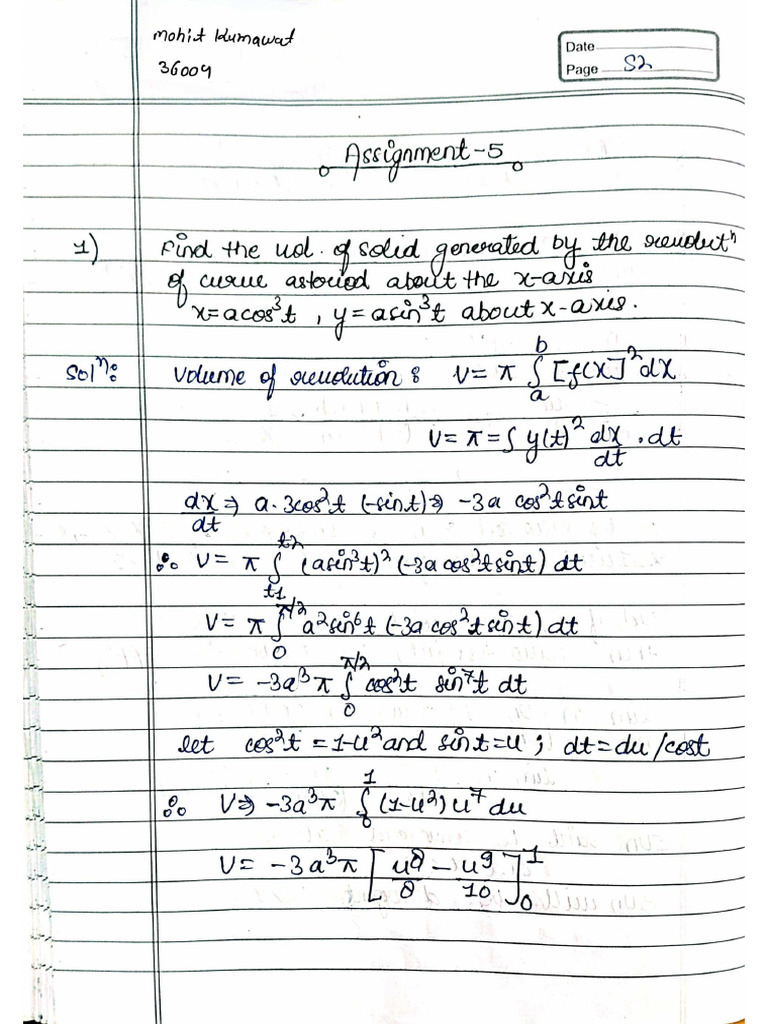 mohit Kumawat
36009
Date
Page 52
Assignment-5
1) Find the vol. of solid generated by the revolutⁿ
of curve astoriod about the x-axis
x=acos³t , y=asin³t about x-axis.
Solⁿ: Volume of revolution : V= π ∫ₐᵇ [f(x)]² dx
V= π = ∫ y(t)² dx/dt . dt
dx/dt ⇒ a·3cos²t (-sint) ⇒ -3a cos²t sint
∴ V= π ∫_{t1}^{t2} (asin³t)² (-3a cos²t sint) dt
V= π ∫_0^{π/2} a² sin⁶t (-3a cos²t sint) dt
V= -3a³π ∫_0^{π/2} cos²t sin⁷t dt
let cos²t = 1-u² and sint=u ; dt=du/cost
∴ V⇒ -3a³π ∫_0^1 (1-u²) u⁷ du
V= -3a³π [u⁸/8 - u⁹/10]_0^1